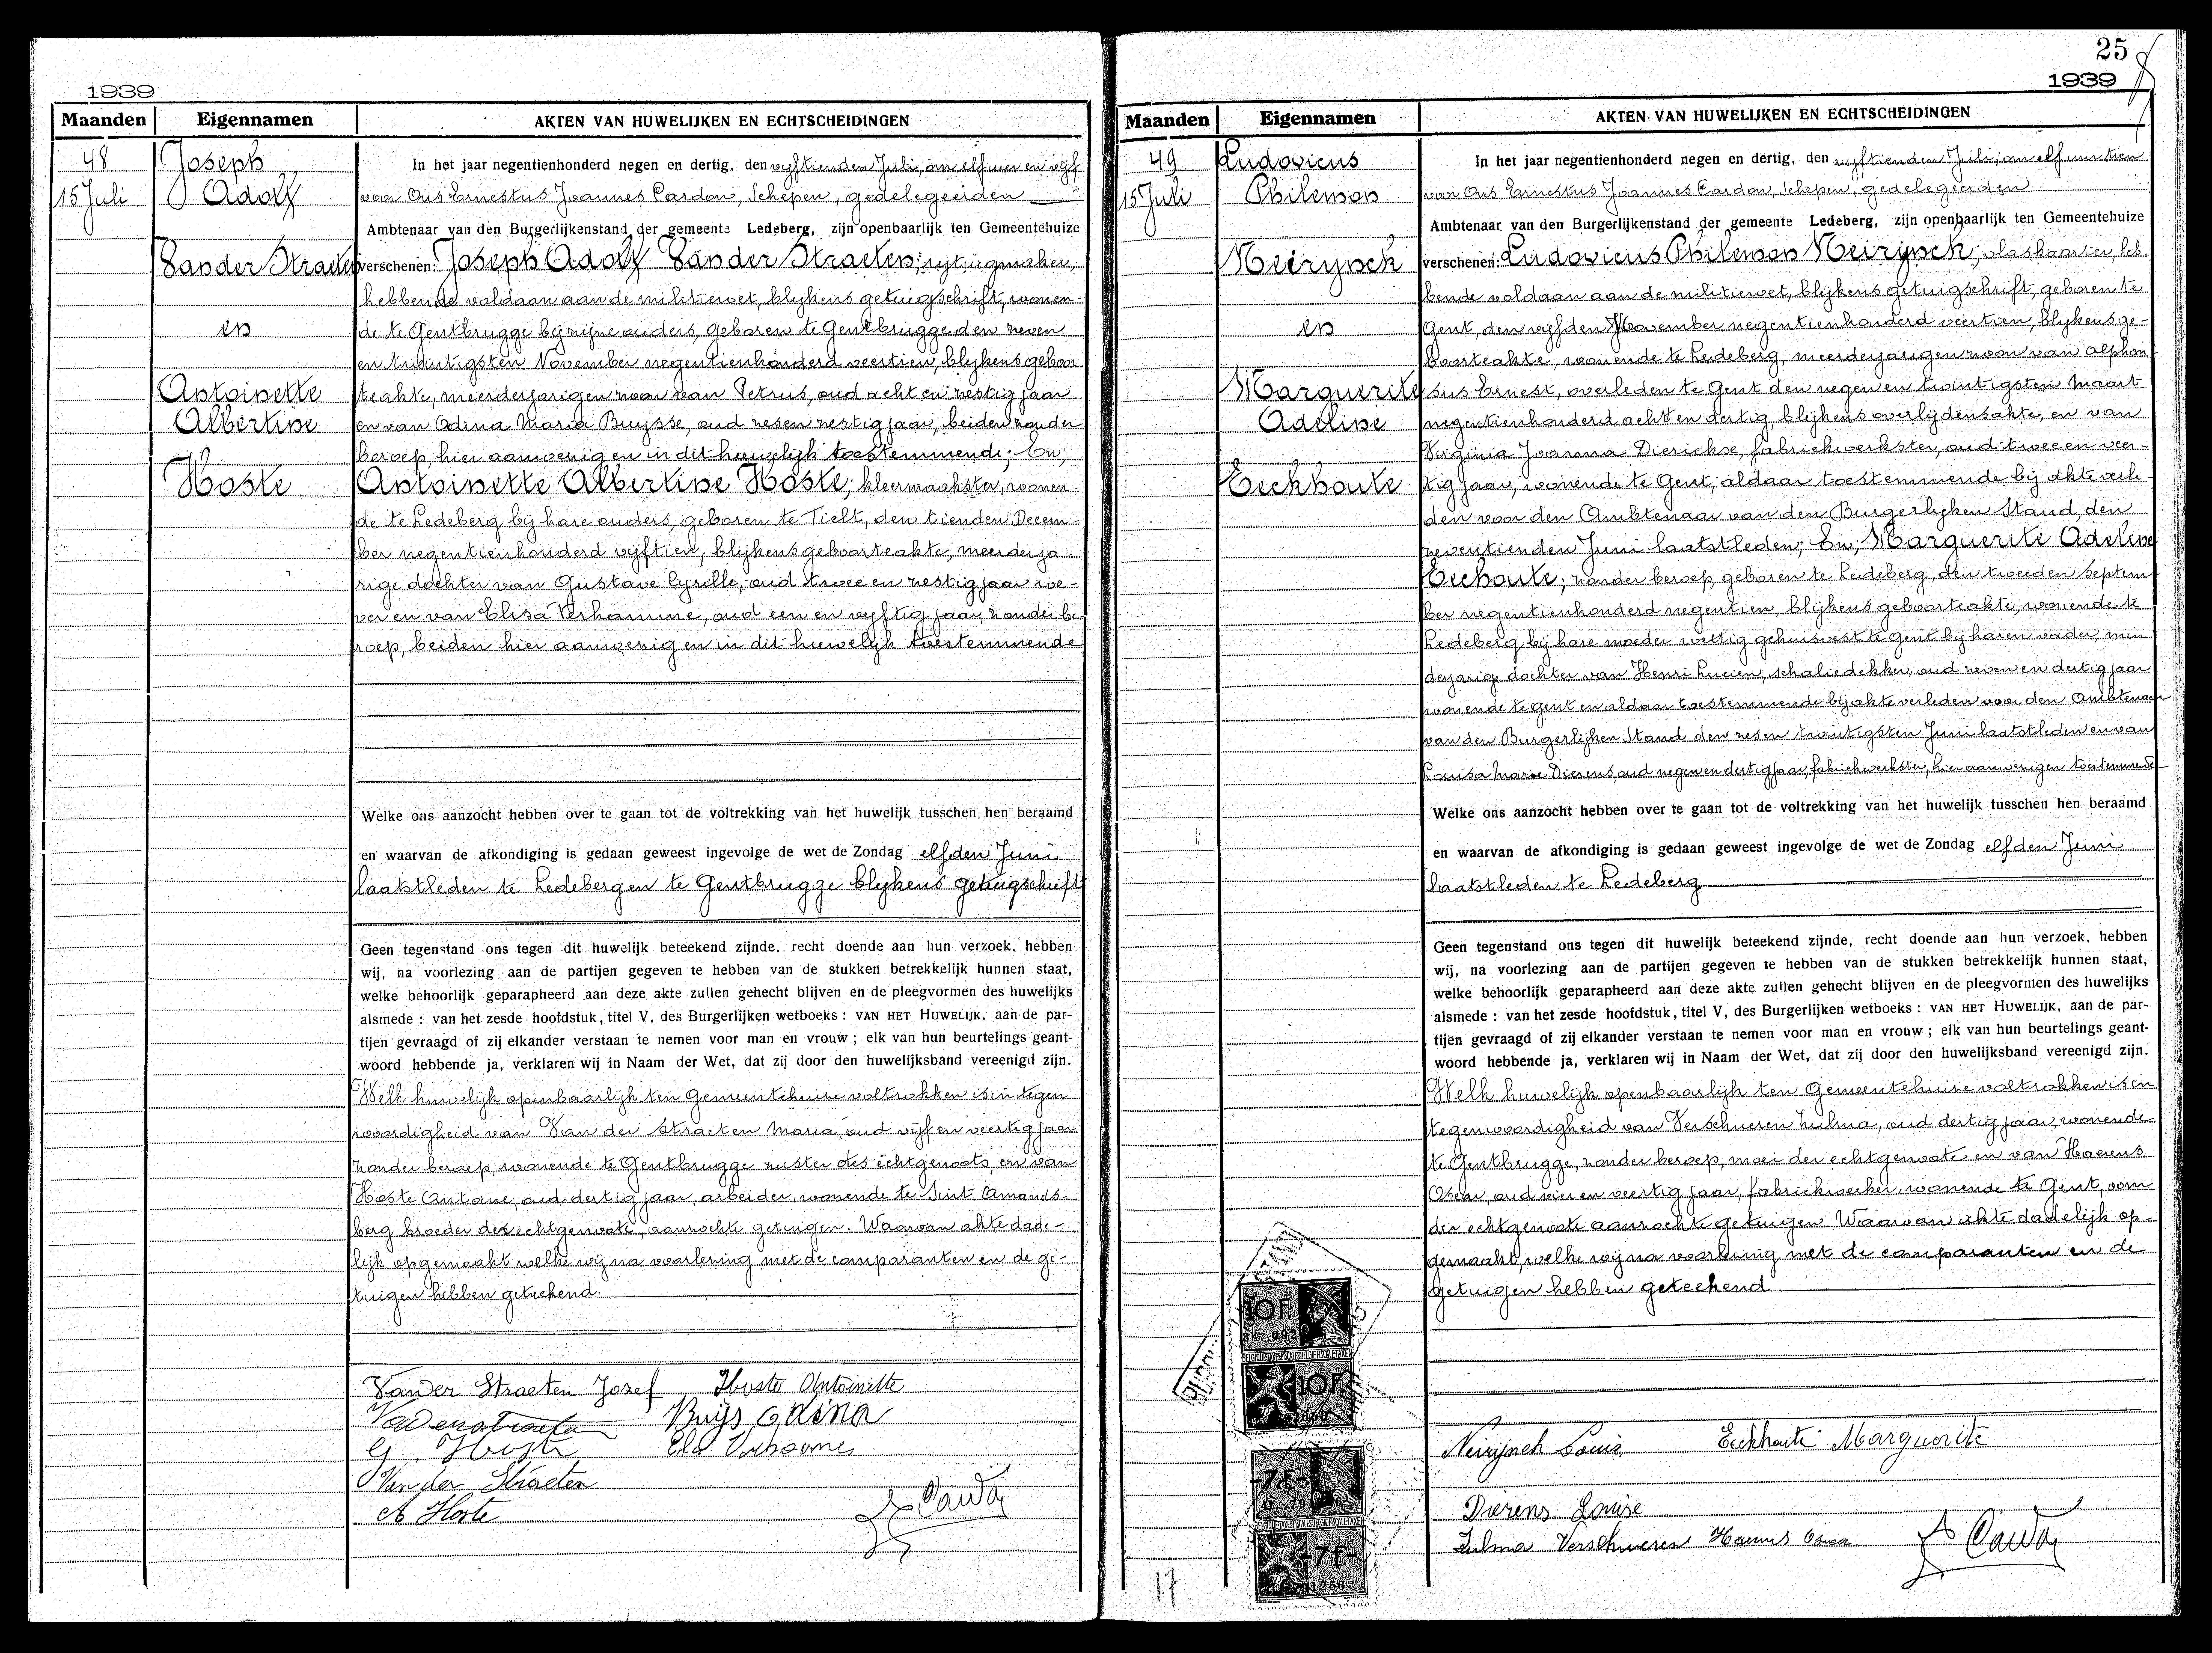 1939
Maanden Eigennamen AKTEN VAN HUWELIJKEN EN ECHTSCHEIDINGEN
48
15 Juli
Joseph
Adolf
Van der Straeten
en
Antoinette
Albertine
Hoste
In het jaar negentienhonderd negen en dertig, den vijftienden Juli, om elf uur en vijf
voor Ons Ernestus Joannes Cardon, Schepen, gedelegeerden
Ambtenaar van den Burgerlijkenstand der gemeente Ledeberg, zijn openbaarlijk ten Gemeentehuize
verschenen: Joseph Adolf Van der Straeten; rijtuigmaker,
hebbende voldaan aan de militiewet, blijkens getuigschrift, wonen-
de te Gentbrugge bij zijne ouders, geboren te Gentbrugge den zeven
en twintigsten November negentienhonderd veertien, blijkens geboor
teakte, meerderjarigen zoon van Petrus, oud acht en zestig jaar
en van Odina Maria Buysse, oud zesen zestig jaar, beiden zonder
beroep, hier aanwezig en in dit huwelijk toestemmende; En;
Antoinette Albertine Hoste; kleermaakster, wonen-
de te Ledeberg bij hare ouders, geboren te Tielt, den tienden Decem-
ber negentienhonderd vijftien, blijkens geboorteakte, meerderja-
rige dochter van Gustave Cyrille, oud twee en zestig jaar we-
ver en van Elisa Verhamme, oud een en vijftig jaar, zonder be-
roep, beiden hier aanwezig en in dit huwelijk toestemmende
Welke ons aanzocht hebben over te gaan tot de voltrekking van het huwelijk tusschen hen beraamd
en waarvan de afkondiging is gedaan geweest ingevolge de wet de Zondag elfden Juni
laatstleden te Ledeberg en te Gentbrugge blijkens getuigschrift
Geen tegenstand ons tegen dit huwelijk beteekend zijnde, recht doende aan hun verzoek, hebben
wij, na voorlezing aan de partijen gegeven te hebben van de stukken betrekkelijk hunnen staat,
welke behoorlijk geparapheerd aan deze akte zullen gehecht blijven en de pleegvormen des huwelijks
alsmede : van het zesde hoofdstuk, titel V, des Burgerlijken wetboeks : VAN HET HUWELIJK, aan de par-
tijen gevraagd of zij elkander verstaan te nemen voor man en vrouw ; elk van hun beurtelings geant-
woord hebbende ja, verklaren wij in Naam der Wet, dat zij door den huwelijksband vereenigd zijn.
Welk huwelijk openbaarlijk ten Gemeentehuize voltrokken is in tegen
woordigheid van Van der Straeten Maria, oud vijf en veertig jaar
zonder beroep, wonende te Gentbrugge zuster des echtgenoots, en van
Hoste Antoine, oud dertig jaar, arbeider, wonende te Sint Amands-
berg broeder der echtgenoote, aanzochte getuigen. Waarvan akte dade-
lijk opgemaakt welke wij na voorlezing met de comparanten en de ge-
tuigen hebben geteekend.
Van der Straeten Jozef Hoste Antoinette
Buijs Odina
Van der Straeten
A Hoste
25
1939
Maanden Eigennamen AKTEN VAN HUWELIJKEN EN ECHTSCHEIDINGEN
49
15 Juli
Ludovicus
Philemon
Neirynck
en
Marguerite
Adeline
Eeckhoute
In het jaar negentienhonderd negen en dertig, den vijftienden Juli, om elf uur tien
voor Ons Ernestus Joannes Cardon, Schepen, gedelegeerden
Ambtenaar van den Burgerlijkenstand der gemeente Ledeberg, zijn openbaarlijk ten Gemeentehuize
verschenen: Ludovicus Philemon Neirynck; vlaskaarder, heb
bende voldaan aan de militiewet, blijkens getuigschrift, geboren te
Gent, den vijfden November negentienhonderd veertien, blijkens ge-
boorteakte, wonende te Ledeberg, meerderjarigen zoon van Alphon
sus Ernest, overleden te Gent den negen en twintigsten Maart
negentienhonderd acht en dertig, blijkens overlijdensakte, en van
Virginia Joanna Dierickse, fabriekwerkster, oud twee en veer-
tig jaar, wonende te Gent, aldaar toestemmende bij akte verle-
den voor den Ambtenaar van den Burgerlijken Stand, den
zeventienden Juni laatstleden; En; Marguerite Adeline
Eeckhoute; zonder beroep, geboren te Ledeberg, den tweeden Septem
ber negentienhonderd negentien, blijkens geboorteakte, wonende te
Ledeberg, bij hare moeder wettig gehuisvest te Gent bij haren vader, min
derjarige dochter van Henri Lucien, schaliedekker, oud zeven en dertig jaar
wonende te Gent en aldaar toestemmende bij akte verleden voor den Ambtenaar
van den Burgerlijken Stand den zesen twintigsten Juni laatstleden en van
Louisa Marie Dierens oud negen en dertig jaar, fabriekwerkster, hier aanwezig en toestemmende
Welke ons aanzocht hebben over te gaan tot de voltrekking van het huwelijk tusschen hen beraamd
en waarvan de afkondiging is gedaan geweest ingevolge de wet de Zondag elfden Juni
laatstleden te Ledeberg
Geen tegenstand ons tegen dit huwelijk beteekend zijnde, recht doende aan hun verzoek, hebben
wij, na voorlezing aan de partijen gegeven te hebben van de stukken betrekkelijk hunnen staat,
welke behoorlijk geparapheerd aan deze akte zullen gehecht blijven en de pleegvormen des huwelijks
alsmede : van het zesde hoofdstuk, titel V, des Burgerlijken wetboeks : VAN HET HUWELIJK, aan de par-
tijen gevraagd of zij elkander verstaan te nemen voor man en vrouw ; elk van hun beurtelings geant-
woord hebbende ja, verklaren wij in Naam der Wet, dat zij door den huwelijksband vereenigd zijn.
Welk huwelijk openbaarlijk ten Gemeentehuize voltrokken is in
tegenwoordigheid van Verschueren Zulma, oud dertig jaar, wonende
te Gentbrugge, zonder beroep, moei der echtgenoote en van Haerens
Oscar, oud vier en veertig jaar, fabriekwerker, wonende te Gent, oom
der echtgenoote aanzochte getuigen. Waarvan akte dadelijk op-
gemaakt, welke wij na voorlezing met de comparanten en de
getuigen hebben geteekend
10F
10F
-7F-
-7F-
Neirijnck Louis Eeckhoute Marguerite
Dierens Louise
Zulma Verschueren
17